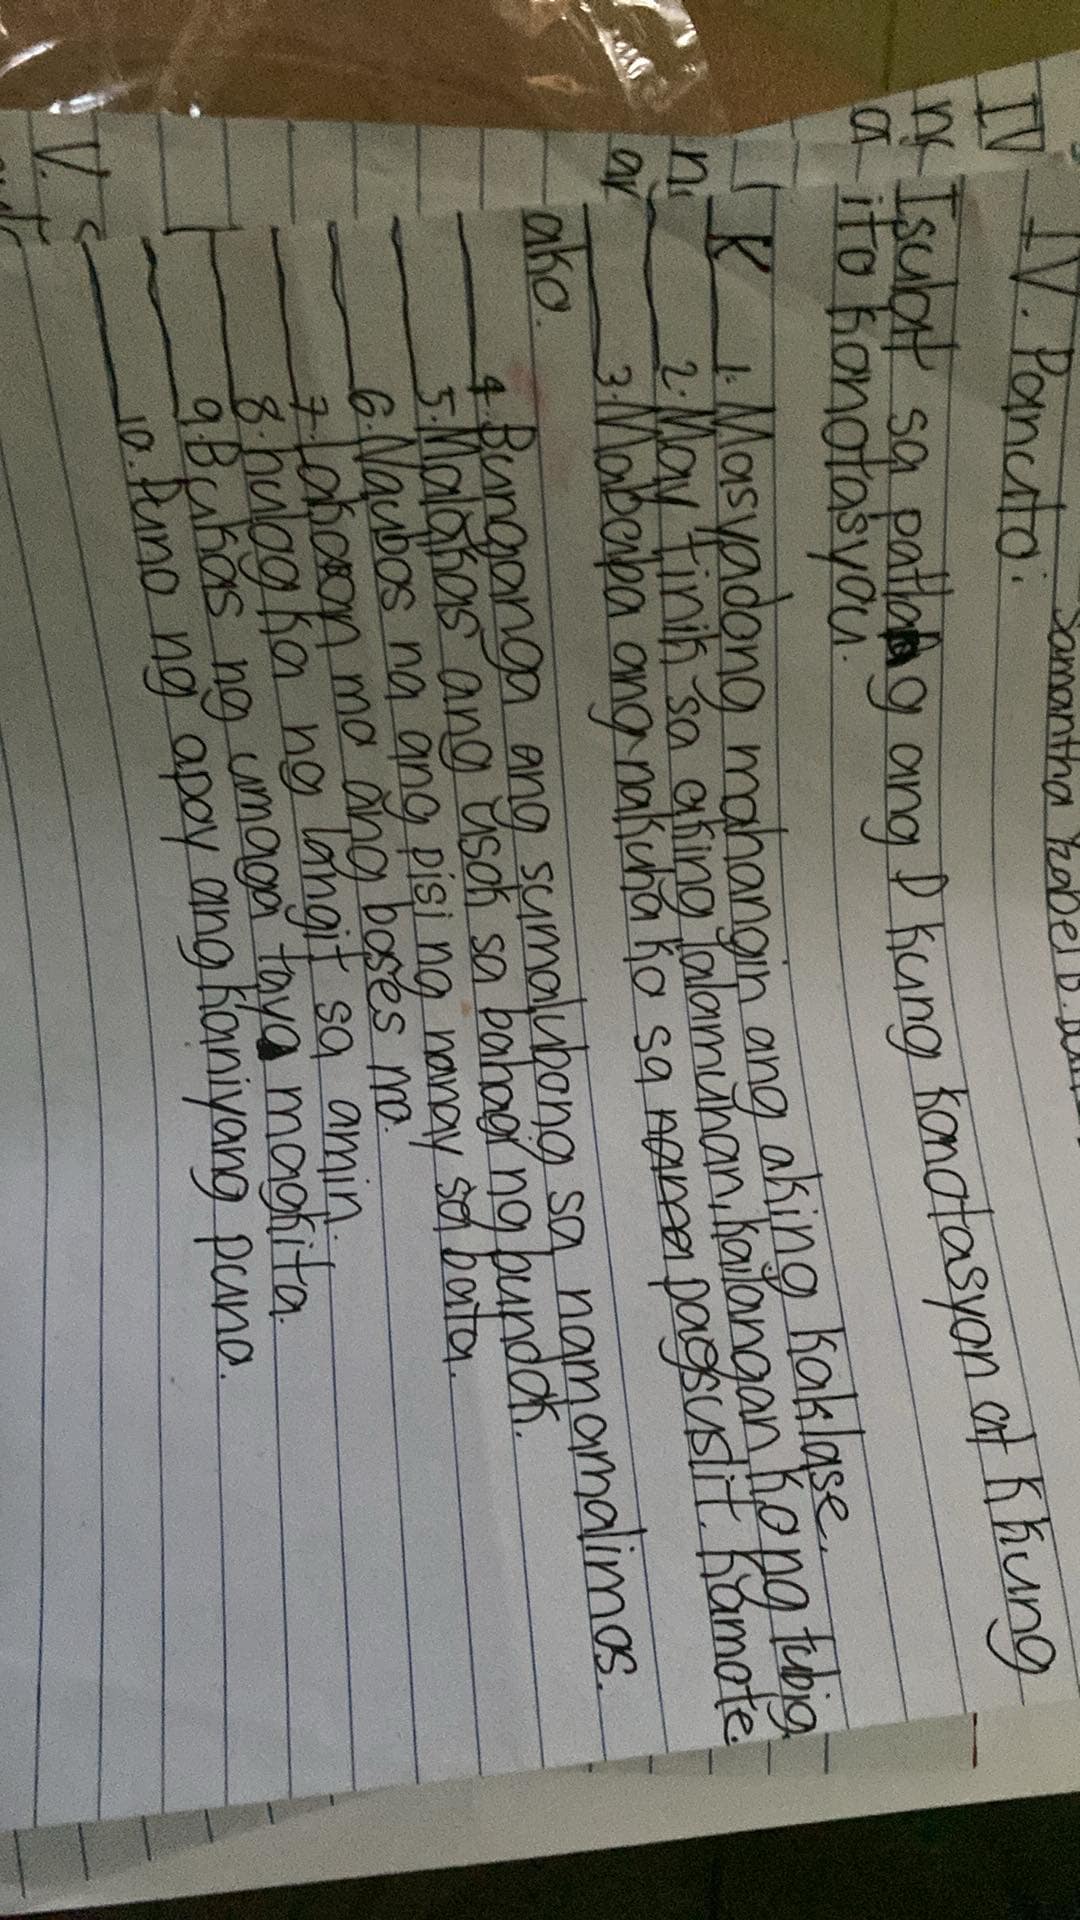 Samantha
IV. Panuto:
Isulat sa patlang ang D kung konotasyon at K kung
ito konotasyou.
K 1. Masyadong mahangin ang aking kaklase.
2. May tinik sa aking lalamunan, kailangan ko ng tubig.
3. Mababa ang nakuha ko sa pagsusulit. Kamote
ako.
4. Bunganga ang sumalubong sa namamalimos.
5. Malakas ang usok sa bahagi ng bundok.
6. Naubos na ang pisi ng nanay sa bata.
7. lakasan mo ang boses mo.
8. hulog ka ng langit sa amin.
9. Bukas ng umaga tayo magkita.
10. Puno ng apoy ang kaniyang puno.
IV
V.